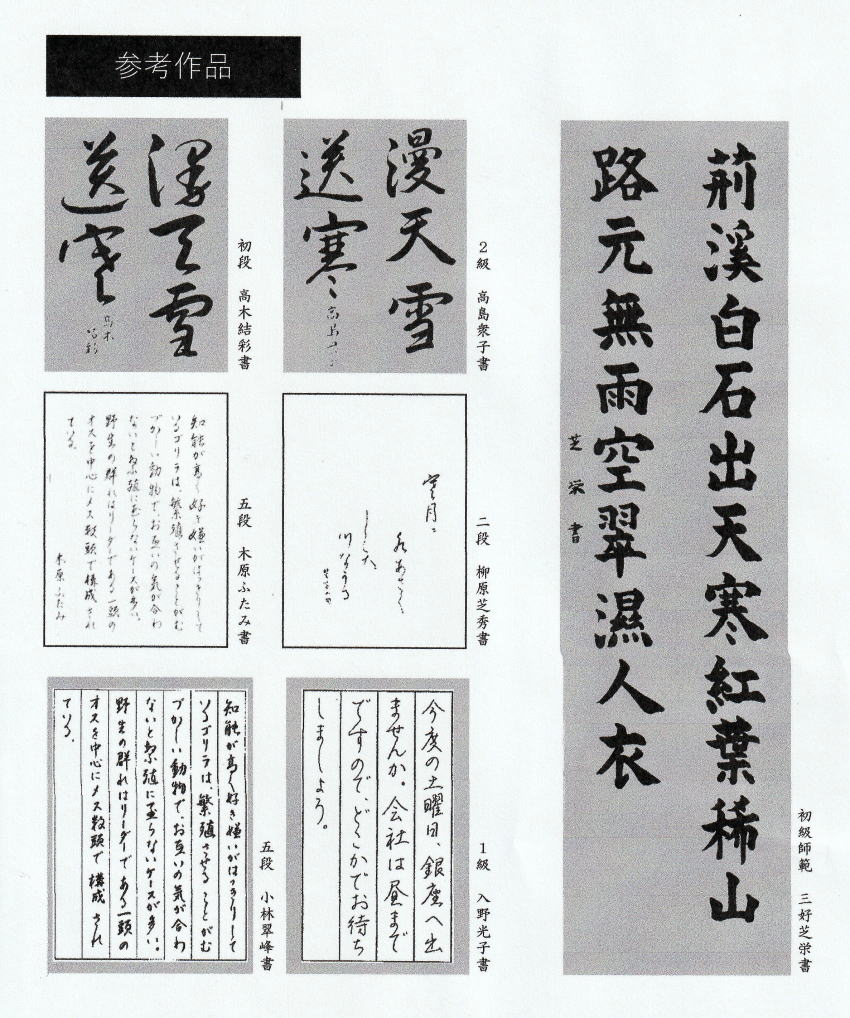 参考作品
荊溪白石出天寒紅葉稀山
路元無雨空翠濕人衣
芝栄書
初級師範 三好芝栄書
漫天雪
送寒
2級 高島衆子書
漫天雪
送寒
高木
結彩
初段 高木結彩書
二段 柳原芝秀書
知能が高く好き嫌いがはっきりして
いるゴリラは、繁殖させることがむ
づかしい動物で、お互いの気が合わ
ないと繁殖に至らないケースが多い。
野生の群れはリーダーである一頭の
オスを中心にメス数頭で構成され
ている。
木原ふたみ
五段 木原ふたみ書
今度の土曜日、銀座へ出
ませんか。会社は昼まで
ですので、どこかでお待ち
しましょう。
1級 入野光子書
知能が高く好き嫌いがはっきりして
いるゴリラは、繁殖させることがむ
づかしい動物で、お互いの気が合わ
ないと繁殖に至らないケースが多い。
野生の群れはリーダーである一頭の
オスを中心にメス数頭で構成され
ている。
五段 小林翠峰書